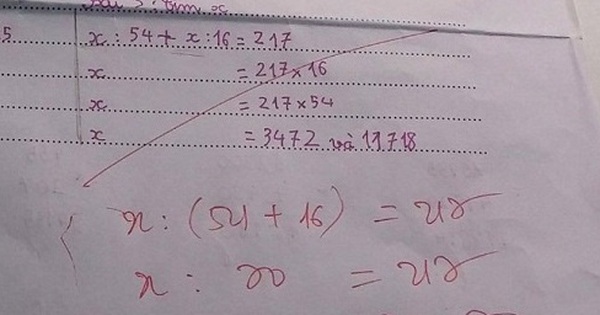 5 x : 54 + x : 16 = 217
x = 217 x 16
x = 217 x 54
x = 3472 và 11718
x : (54 + 16) = 217
x : 70 = 217